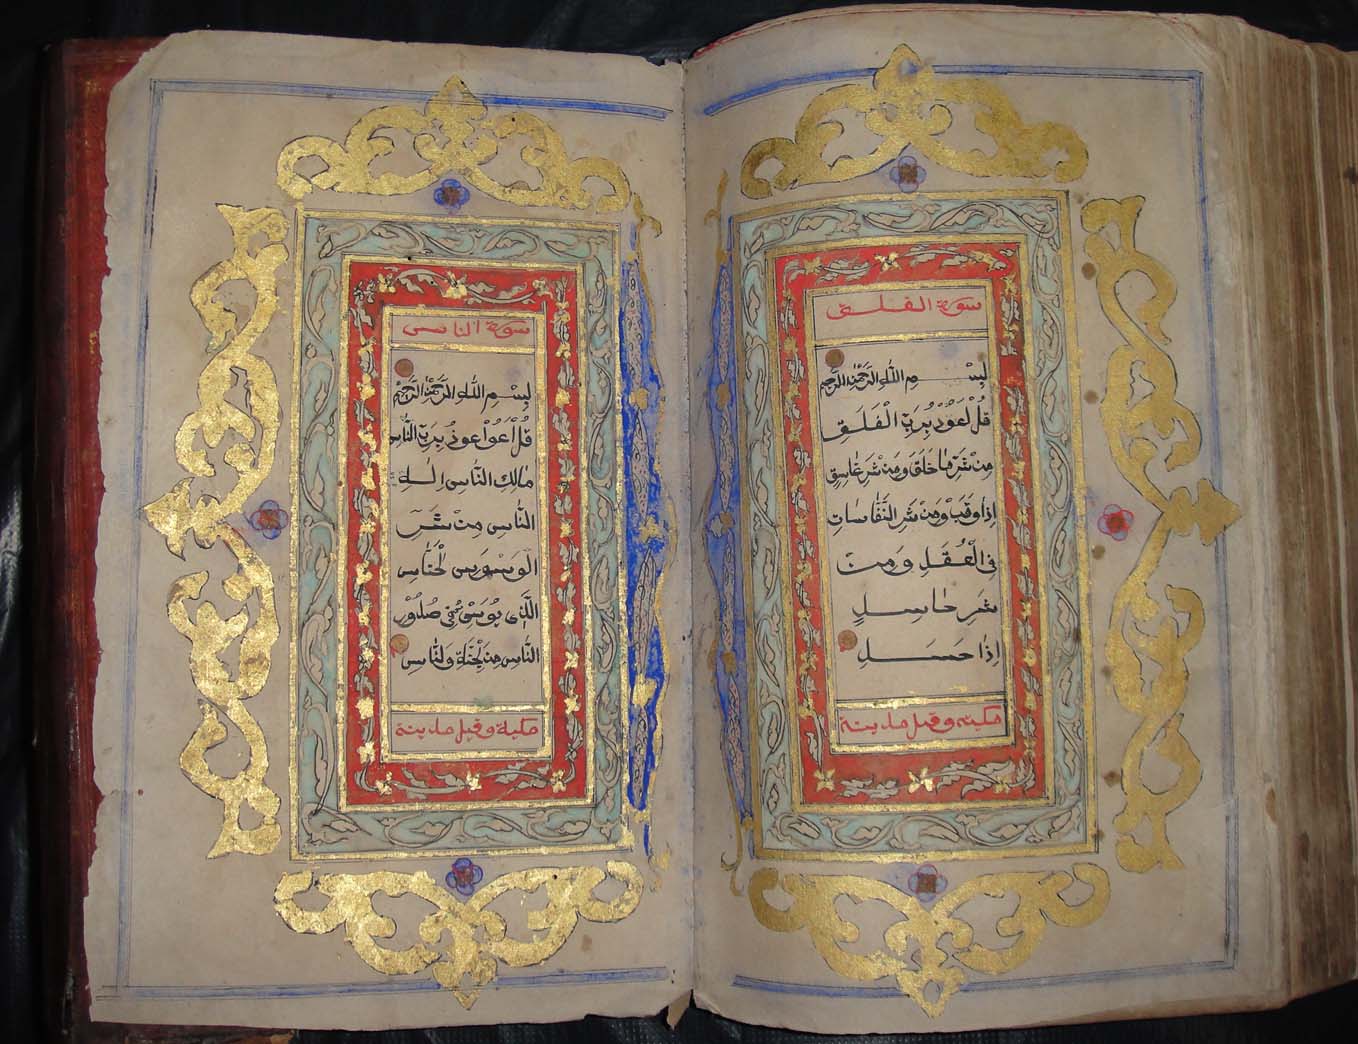 سورة الفلق
بِسْمِ اللّٰهِ الرَّحْمٰنِ الرَّحِيْمِ
قُلْ اَعُوْذُ بِرَبِّ الْفَلَقِ
مِنْ شَرِّ مَا خَلَقَ وَمِنْ شَرِّ غَاسِقٍ
اِذَا وَقَبَ وَمِنْ شَرِّ النَّفّٰاسَاتِ
فِى الْعُقَدِ وَمِنْ
شَرِّ حَاسِدٍ
اِذَا حَسَدَ
مكية وقيل مدينة
سورة الناس
بِسْمِ اللّٰهِ الرَّحْمٰنِ الرَّحِيْمِ
قُلْ اَعُوْذُ بِرَبِّ النَّاسِ
مَالِكِ النَّاسِ اِلٰهِ
النَّاسِ مِنْ شَرِّ
الْوَسْوَاسِ الْخَنَّاسِ
الَّذِى يُوَسْوِسُ فِى صُدُوْرِ
النَّاسِ مِنَ الْجِنَّةِ وَالنَّاسِ
مكية وقيل مدينة